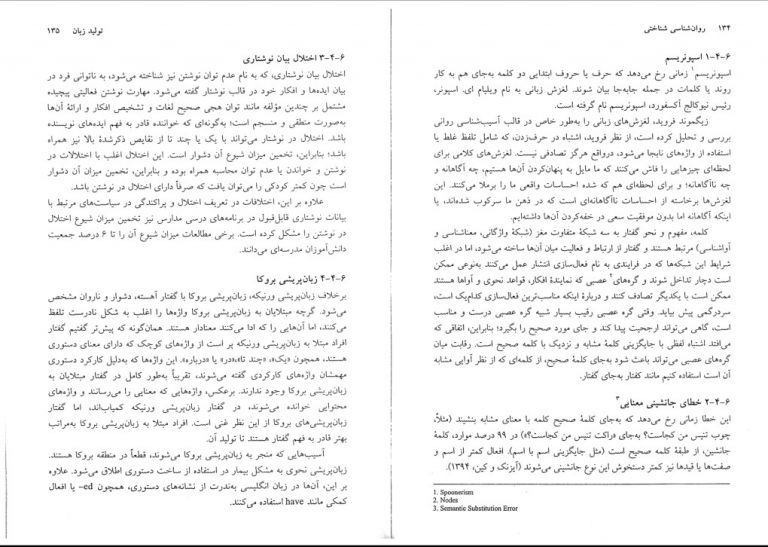 ۱۳۴ روان‌شناسی شناختی
۶-۴-۱ اسپونریسم
اسپونریسم۱ زمانی رخ می‌دهد که حرف یا حروف ابتدایی دو کلمه به‌جای هم به کار
روند یا کلمات در جمله جابه‌جا بیان شوند. لغزش زبانی به نام ویلیام ای. اسپونر،
رئیس نیوکالج آکسفورد، اسپونریسم نام گرفته است.
زیگموند فروید، لغزش‌های زبانی را به‌طور خاص در قالب آسیب‌شناسی روانی
بررسی و تحلیل کرده است، از نظر فروید، اشتباه در حرف‌زدن، که شامل تلفظ غلط یا
استفاده از واژه‌های نابجا می‌شود، درواقع هرگز تصادفی نیست. لغزش‌های کلامی برای
لحظه‌ای چیزهایی را فاش می‌کنند که ما مایل به پنهان‌کردن آن‌ها هستیم، چه آگاهانه و
چه ناآگاهانه؛ و برای لحظه‌ای هم که شده احساسات واقعی ما را برملا می‌کنند. این
لغزش‌ها برخاسته از احساسات ناآگاهانه‌ای است که در ذهن ما سرکوب شده‌اند، یا
اینکه آگاهانه اما بدون موفقیت سعی در خفه‌کردن آن‌ها داشته‌ایم.
کلمه، مفهوم و نحو گفتار به سه شبکهٔ متفاوت مغز (شبکهٔ واژگانی، معناشناسی و
آواشناسی) مرتبط هستند و گفتار از ارتباط و فعالیت میان آن‌ها ساخته می‌شود، اما در اغلب
شرایط این شبکه‌ها که در فرایندی به نام فعال‌سازی انتشار عمل می‌کنند به‌نوعی ممکن
است دچار تداخل شوند و گره‌های۲ عصبی که نمایندهٔ افکار، قواعد نحوی و آواها هستند
ممکن است با یکدیگر تصادف کنند و دربارهٔ اینکه مناسب‌ترین فعال‌سازی کدام‌یک است،
سردرگمی پیش بیاید. وقتی گره عصبی رقیب بسیار شبیه گره عصبی درست و مناسب
است، گاهی می‌تواند ارجحیت پیدا کند و جای مورد صحیح را بگیرد؛ بنابراین، اتفاقی که
می‌افتد اشتباه لفظی با جایگزینی کلمهٔ مشابه و نزدیک با کلمه صحیح است. رقابت میان
گره‌های عصبی می‌تواند باعث شود به‌جای کلمهٔ صحیح، از کلمه‌ای که از نظر آوایی مشابه
آن است استفاده کنیم مانند کفتار به‌جای گفتار.
۶-۴-۲ خطای جانشینی معنایی۳
این خطا زمانی رخ می‌دهد که به‌جای کلمهٔ صحیح کلمه با معنای مشابه بنشیند (مثلاً،
چوب تنیس من کجاست؟ به‌جای «راکت تنیس من کجاست؟») در ۹۹ درصد موارد، کلمهٔ
جانشین، از طبقهٔ کلمه صحیح است (مثل جایگزینی اسم با اسم). افعال کمتر از اسم و
صفت‌ها یا قیدها نیز کمتر دستخوش این نوع جانشینی می‌شوند (آیزنک و کین، ۱۳۹۴).
1. Spoonerism
2. Nodes
3. Semantic Substitution Error
تولید زبان ۱۳۵
۶-۴-۳ اختلال بیان نوشتاری
اختلال بیان نوشتاری، که به نام عدم توان نوشتن نیز شناخته می‌شود، به ناتوانی فرد در
بیان ایده‌ها و افکار خود در قالب نوشتار گفته می‌شود. مهارت نوشتن فعالیتی پیچیده
مشتمل بر چندین مؤلفه مانند توان هجی صحیح لغات و تشخیص افکار و ارائهٔ آن‌ها
به‌صورت منطقی و منسجم است؛ به‌گونه‌ای که خواننده قادر به فهم ایده‌های نویسنده
باشد. اختلال در نوشتار می‌تواند با یک یا چند تا از نقایص ذکرشدهٔ بالا نیز همراه
باشد؛ بنابراین، تخمین میزان شیوع آن دشوار است. این اختلال اغلب با اختلالات در
نوشتن و خواندن یا عدم توان محاسبه همراه بوده و بنابراین، تخمین میزان آن دشوار
است چون کمتر کودکی را می‌توان یافت که صرفاً دارای اختلال در نوشتن باشد.
علاوه بر این، اختلافات در تعریف اختلال و پراکندگی در سیاست‌های مرتبط با
بیانات نوشتاری قابل‌قبول در برنامه‌های درسی مدارس نیز تخمین میزان شیوع اختلال
در نوشتن را مشکل کرده است. برخی مطالعات میزان شیوع آن را تا ۶ درصد جمعیت
دانش‌آموزان مدرسه‌ای می‌دانند.
۶-۴-۴ زبان‌پریشی بروکا
برخلاف زبان‌پریشی ورنیکه، زبان‌پریشی بروکا با گفتار آهسته، دشوار و ناروان مشخص
می‌شود. گرچه مبتلایان به زبان‌پریشی بروکا واژه‌ها را اغلب به شکل نادرست تلفظ
می‌کنند، اما آن‌هایی را که ادا می‌کنند معنادار هستند. همان‌گونه که پیش‌تر گفتیم گفتار
افراد مبتلا به زبان‌پریشی ورنیکه پر است از واژه‌های کوچک که دارای معنای دستوری
هستند، همچون «یک»، «چند تا»، «در» یا «درباره». این واژه‌ها که به‌دلیل کارکرد دستوری
مهمشان واژه‌های کارکردی گفته می‌شوند، تقریباً به‌طور کامل در گفتار مبتلایان به
زبان‌پریشی بروکا وجود ندارند. برعکس، واژه‌هایی که معنایی را می‌رسانند و واژه‌های
محتوایی خوانده می‌شوند، در گفتار زبان‌پریشی ورنیکه کمیاب‌اند، اما گفتار
زبان‌پریشی‌های بروکا از این نظر غنی است. افراد مبتلا به زبان‌پریشی بروکا به‌مراتب
بهتر قادر به فهم گفتار هستند تا تولید آن.
آسیب‌هایی که منجر به زبان‌پریشی بروکا می‌شوند، قطعاً در منطقه بروکا هستند.
زبان‌پریشی نحوی به مشکل بیمار در استفاده از ساخت دستوری اطلاق می‌شود. علاوه
بر این، آن‌ها در زبان انگلیسی به‌ندرت از نشانه‌های دستوری، همچون ed- یا افعال
کمکی مانند have استفاده می‌کنند.